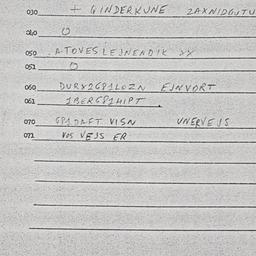 030 + GINDERKUNE 2AXNIDGUTU
040 O
050 .ATOVESLEJNENDIK XY
051 O
060 DURX2GP1LOZN EJNVORT
061 1BERGP1HIPT .
070 GP1DAFT VISN UNERVEJS
071 VOS VEJS ER